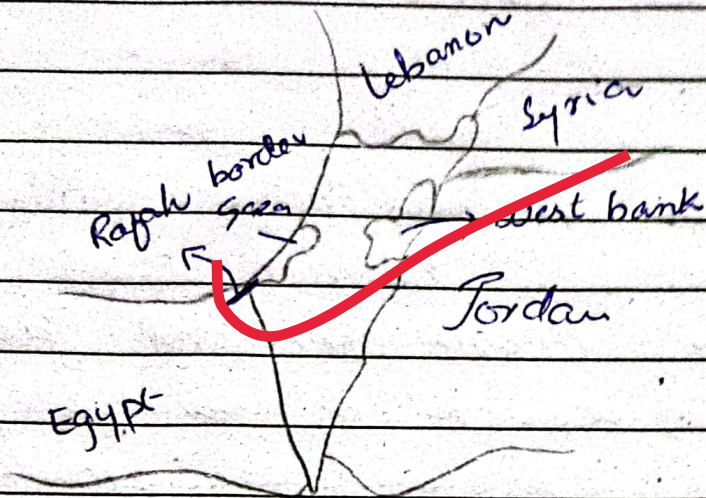 Lebanon
Syria
Rafah border
Gaza
West bank
Jordan
Egypt